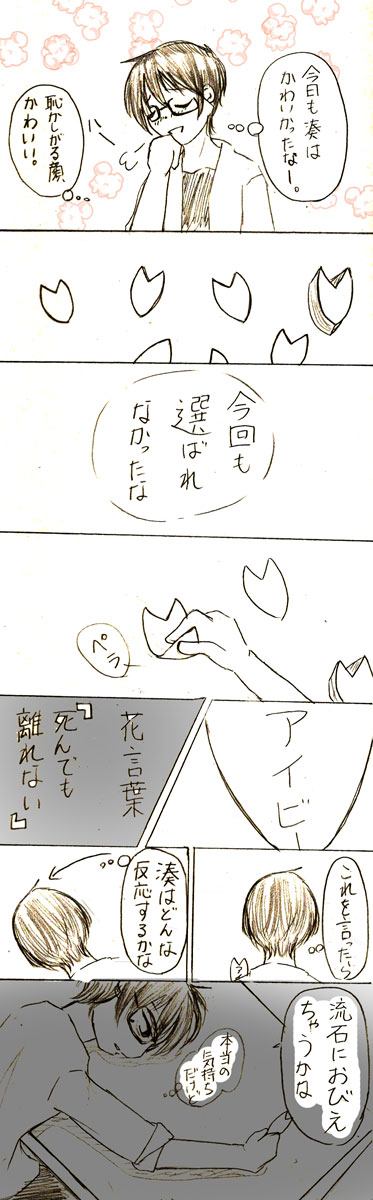 今日も湊は
かわいかったなー。
恥ずかしがる顔、
かわいい。
今回も
選ばれ
なかったな
ペラ
アイビー
花言葉
『死んでも
離れない』
これを言ったら
湊はどんな
反応するかな
流石におびえ
ちゃうかな
本当の
気持ち
だけど